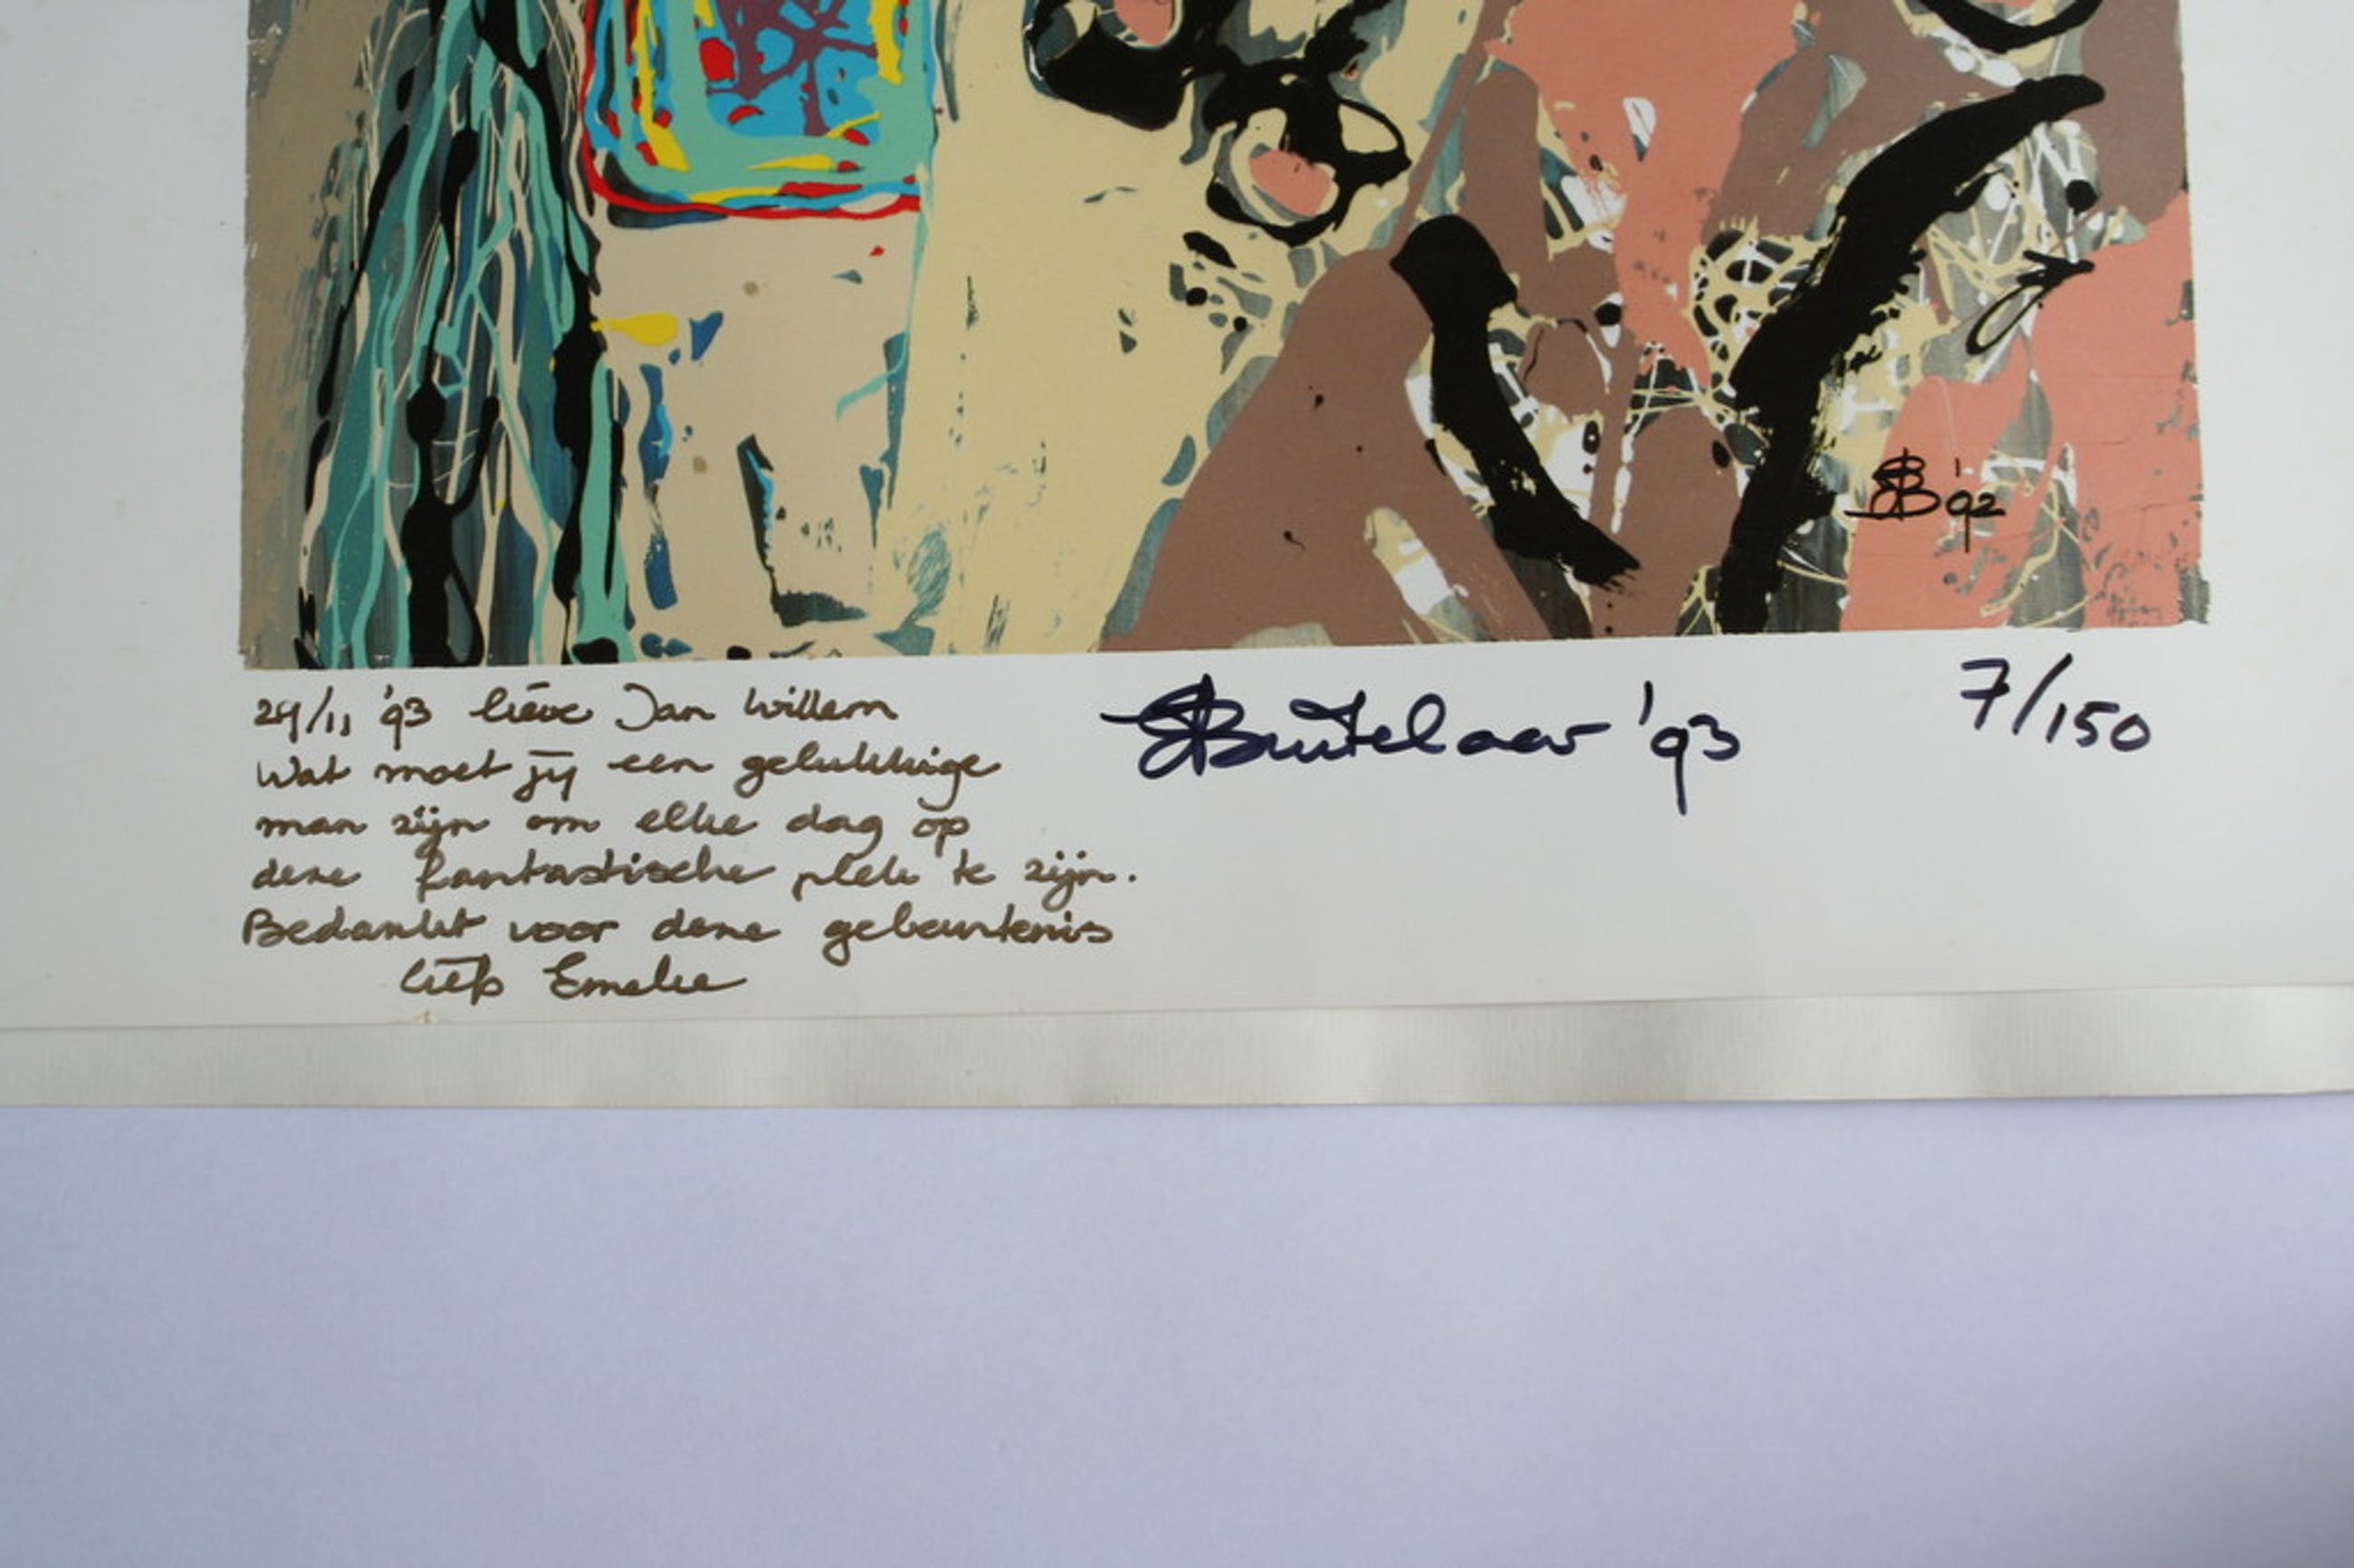 SB '92
29/11 '93 lieve Jan Willem
Wat moet jij een gelukkige
man zijn om elke dag op
deze fantastische plek te zijn.
Bedankt voor deze gebeurtenis
liefs Emelie
SButelaar '93
7/150